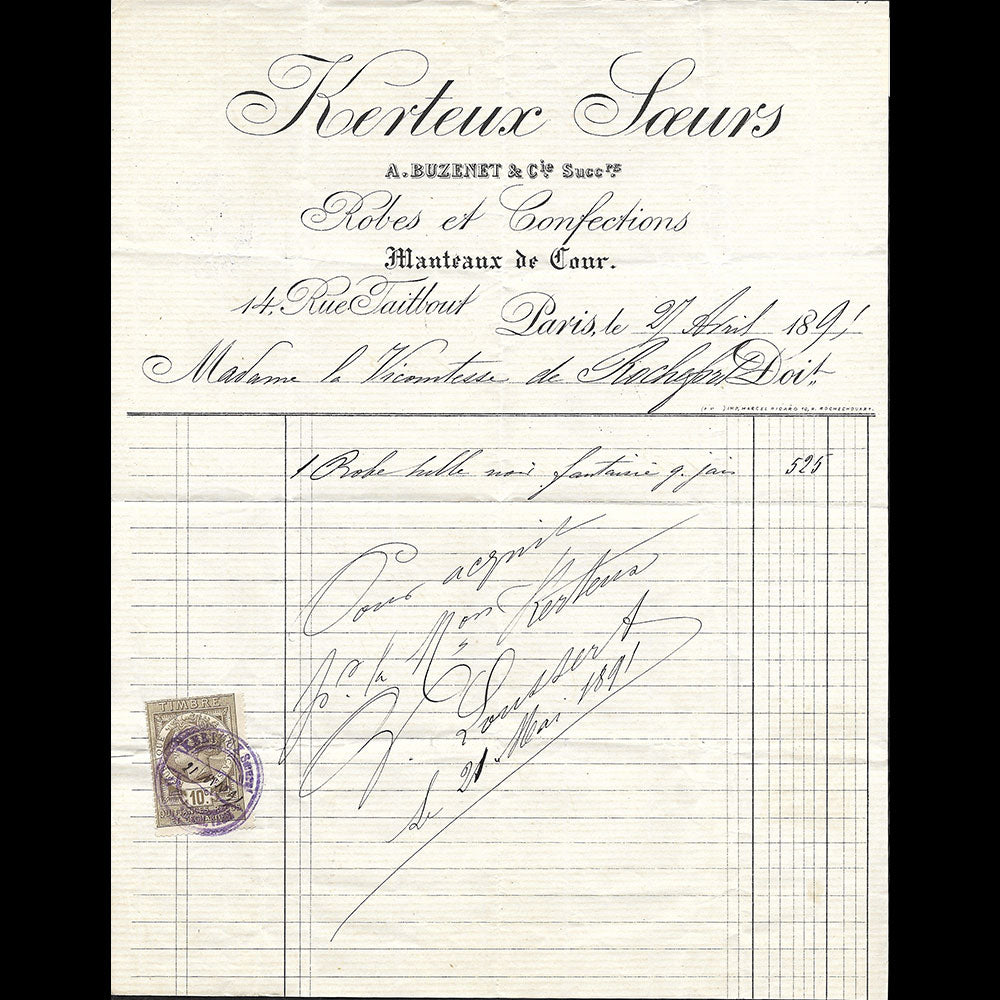 Kerteux Sœurs
A. BUZENET & Cie Succrs
Robes et Confections
Manteaux de Cour.
14, Rue Taitbout
Paris, le 27 Avril 1891
Madame la Vicomtesse de Rochefort Doit
IMP. MARCEL PICARD R. ROCHECHOUART.
1 Robe tulle noir fantaisie g. jais 525
Pour acquit
Pr. la Mon Kerteux
Srs
Le 21 Mai 1891
TIMBRE
KERTEUX Sœurs
21
10c